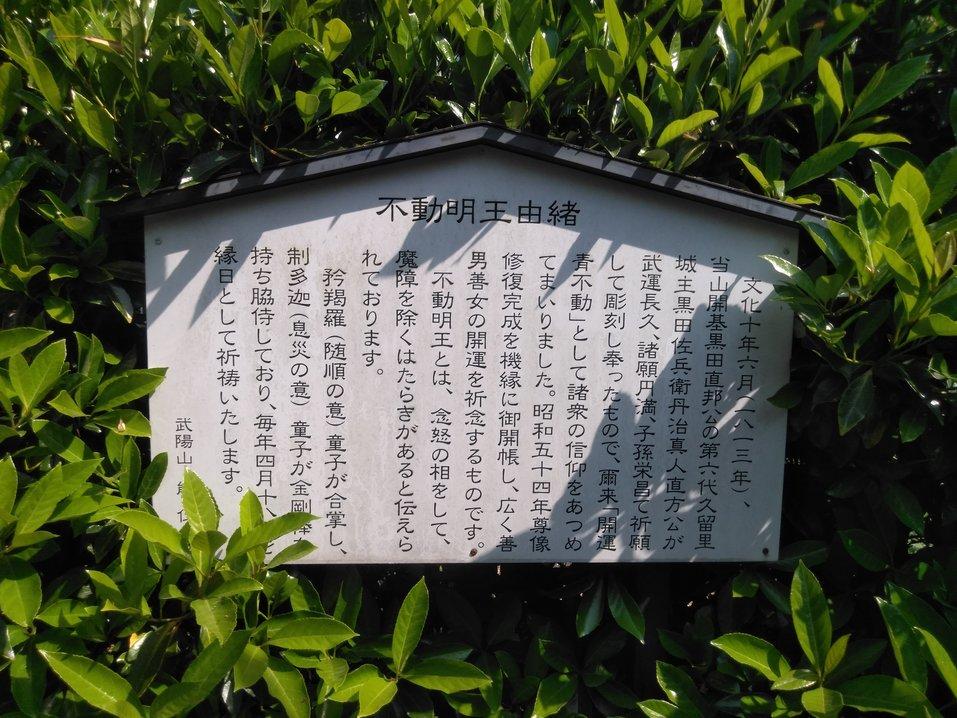 不動明王由緒
文化十年六月（一八一三年）、
当山開基黒田直邦公の第六代久留里
城主黒田佐兵衛丹治真人直方公が
武運長久、諸願円満、子孫栄昌て祈願
して彫刻し奉ったもので、爾来「開運
青不動」として諸衆の信仰をあつめ
てまいりました。昭和五十四年尊像
修復完成を機縁に御開帳し、広く善
男善女の開運を祈念するものです。
不動明王とは、念怒の相をして、
魔障を除くはたらきがあると伝えら
れております。
矜羯羅（随順の意）童子が合掌し、
制多迦（息災の意）童子が金剛棒を
持ち脇侍しており、毎年四月十
縁日として祈祷いたします。
武陽山